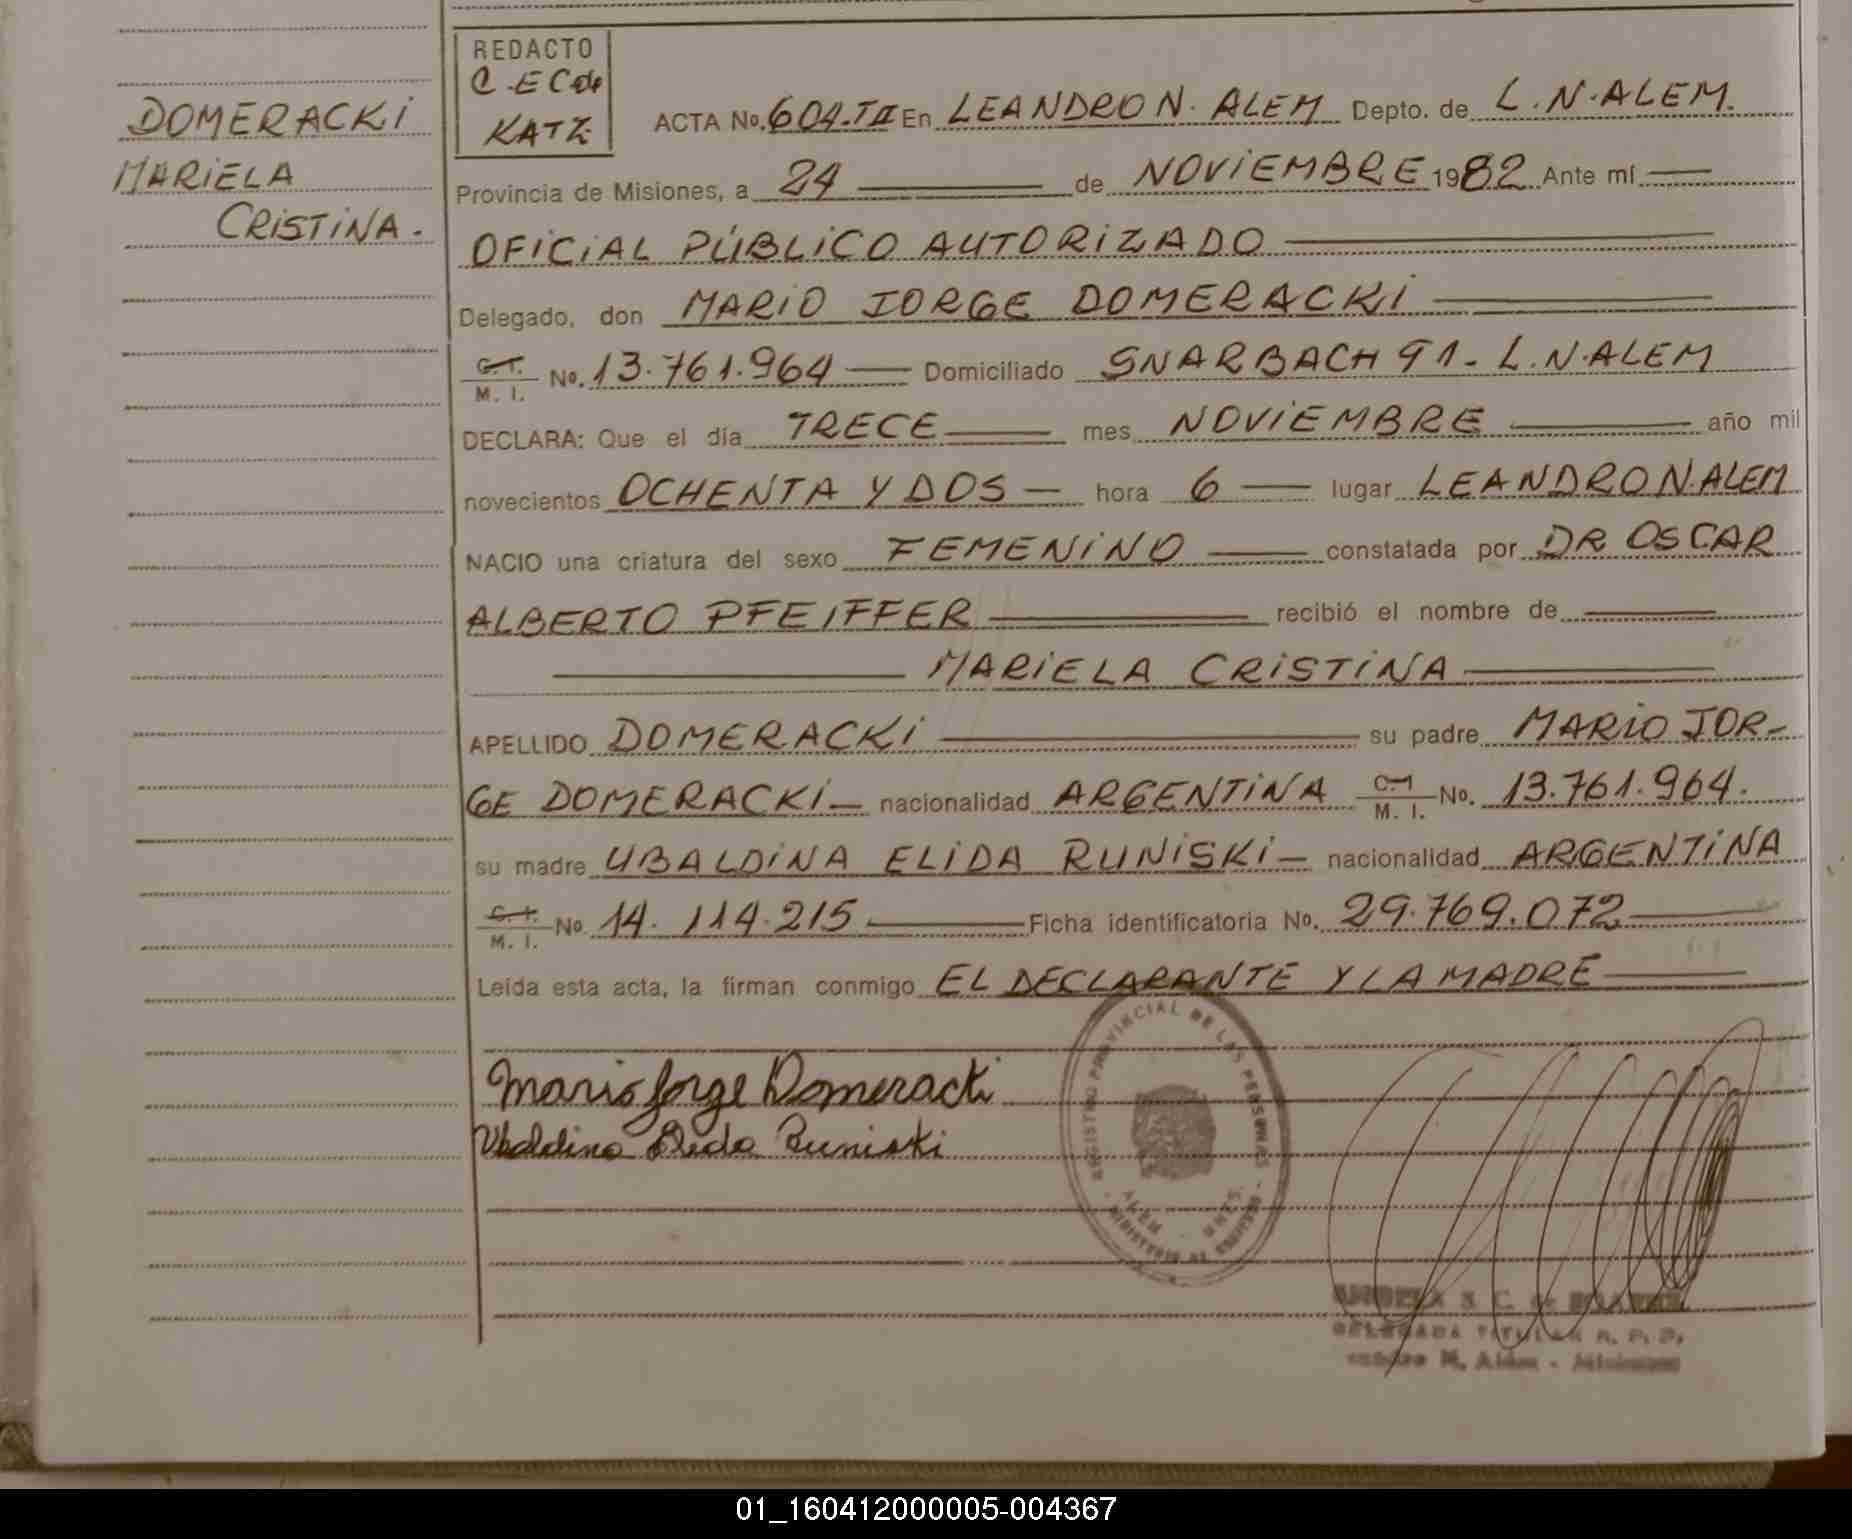 DOMERACKI
MARIELA
CRISTINA.
REDACTO
C. E C de
KATZ
ACTA No. 604.TII En LEANDRO N. ALEM Depto. de L.N.ALEM.
Provincia de Misiones, a 24 de NOVIEMBRE 1982 Ante mí
OFICIAL PÚBLICO AUTORIZADO
Delegado, don MARIO JORGE DOMERACKI
C. I.
M. I. No. 13.761.964 Domiciliado SNARBACH 91- L.N.ALEM
DECLARA: Que el día TRECE mes NOVIEMBRE año mil
novecientos OCHENTA Y DOS hora 6 lugar LEANDRO N.ALEM
NACIO una criatura del sexo FEMENINO constatada por DR OSCAR
ALBERTO PFEIFFER recibió el nombre de
MARIELA CRISTINA
APELLIDO DOMERACKI su padre MARIO JOR-
GE DOMERACKI nacionalidad ARGENTINA C. I. M. I. No. 13.761.964.
su madre UBALDINA ELIDA RUNISKI nacionalidad ARGENTINA
C. I.
M. I. No 14.114.215 Ficha identificatoria No. 29.769.072
Leída esta acta, la firman conmigo EL DECLARANTE Y LA MADRE
Mario Jorge Domeracki
Ubaldina Elida Runiski
REGISTRO PROVINCIAL DE LAS PERSONAS
ALEM MNES.
MINISTERIO DE GOBIERNO
ANGELA S. C. de
DELEGADA TITULAR R. P. P.
Leandro N. Alem - Misiones
01_160412000005-004367